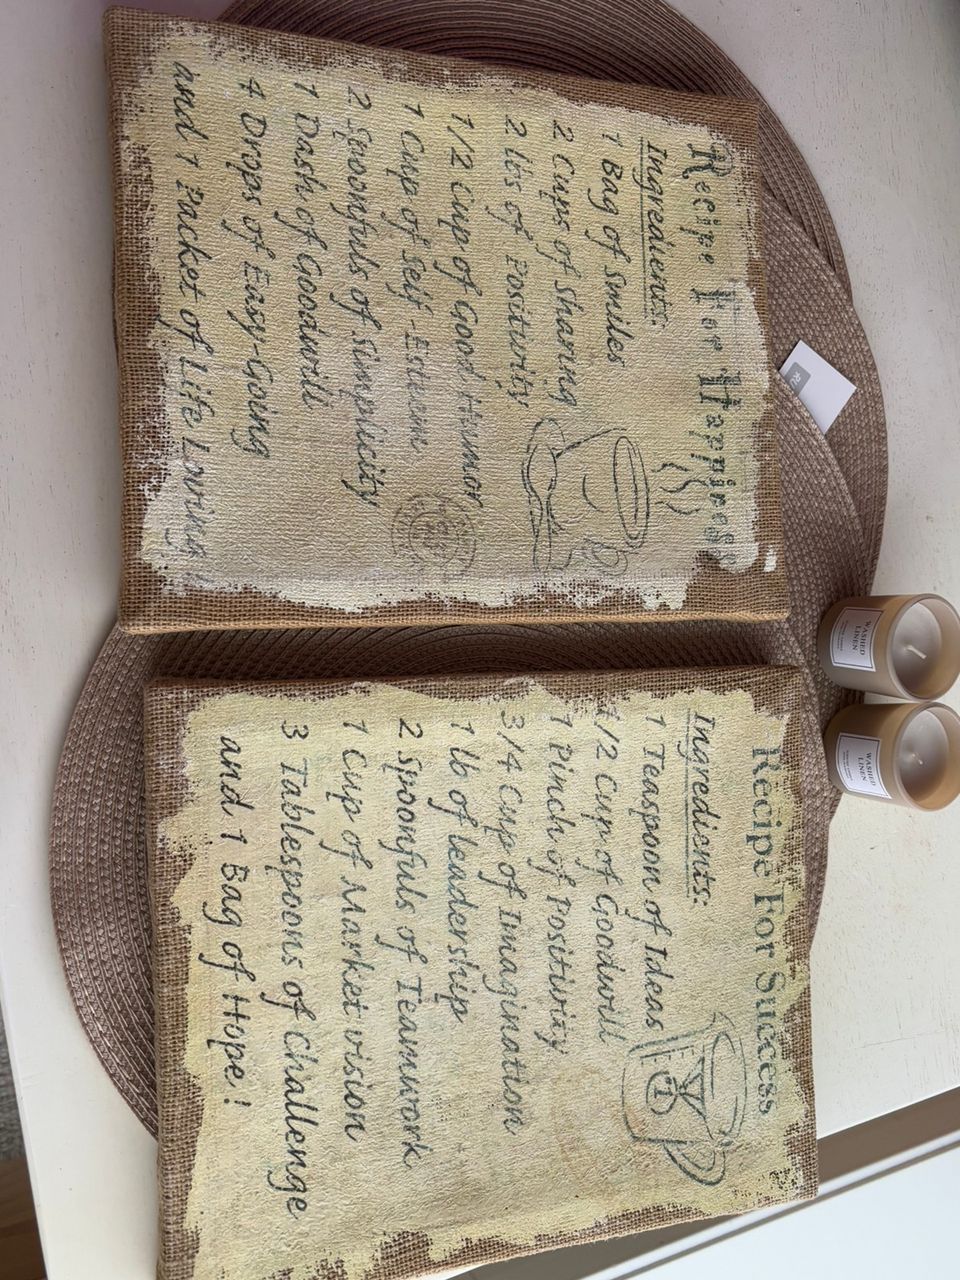 Recipe For Happiness
Ingredients:
1 Bag of Smiles
2 Cups of Sharing
2 lbs of Positivity
1/2 Cup of Good Humor
1 Cup of Self-Esteem
2 Spoonfuls of Simplicity
1 Dash of Goodwill
4 Drops of Easy-Going
and 1 Packet of Life Loving
Recipe For Success
Ingredients:
1 Teaspoon of Ideas
1/2 Cup of Goodwill
1 Pinch of Positivity
3/4 Cup of Imagination
1 lb of leadership
2 Spoonfuls of Teamwork
1 Cup of Market vision
3 Tablespoons of Challenge
and 1 Bag of Hope!
1
WASHED
LINEN
WASHED
LINEN